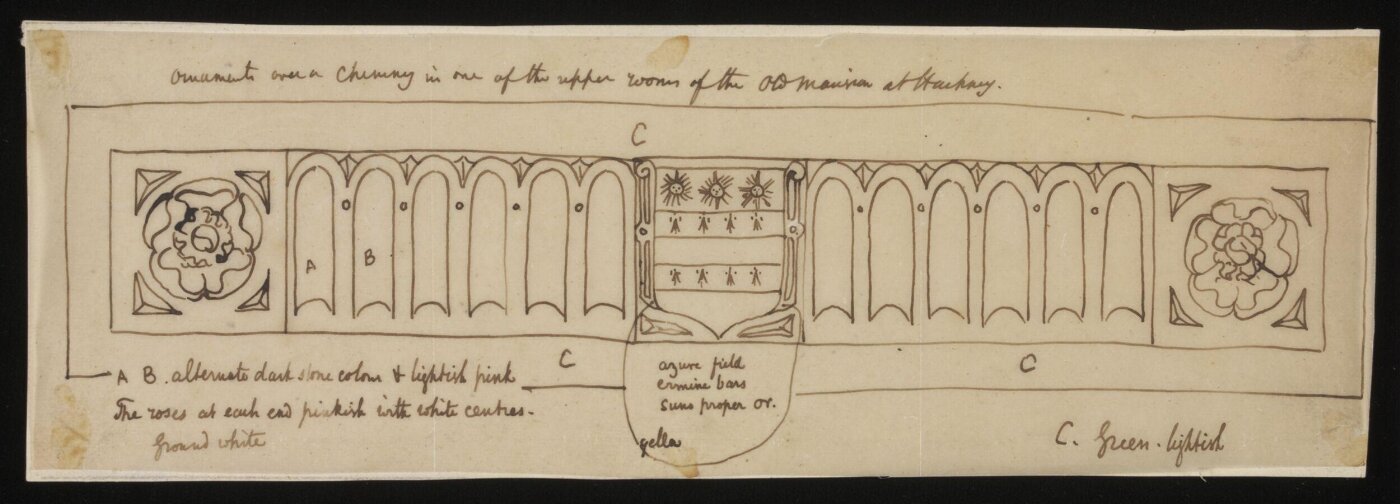 Ornaments over a Chimney in one of the upper rooms of the Old Mansion at Hackney.
C
A B
C
C
azure field
ermine bars
suns proper or.
yello
A B. alternate dark stone colour & lightish pink
The roses at each end pinkish with white centres.
Ground white
C. Green. lightish